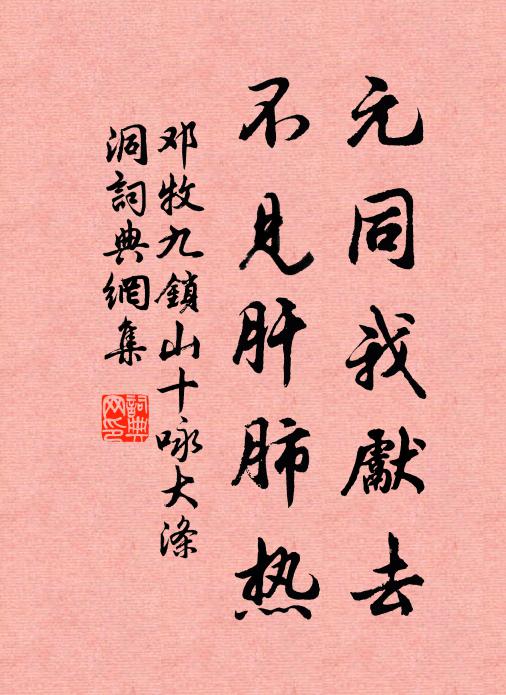 元同我獻去
不見肝肺热
邓牧九鎖山十咏大滌
洞詞典網集
詞典网印